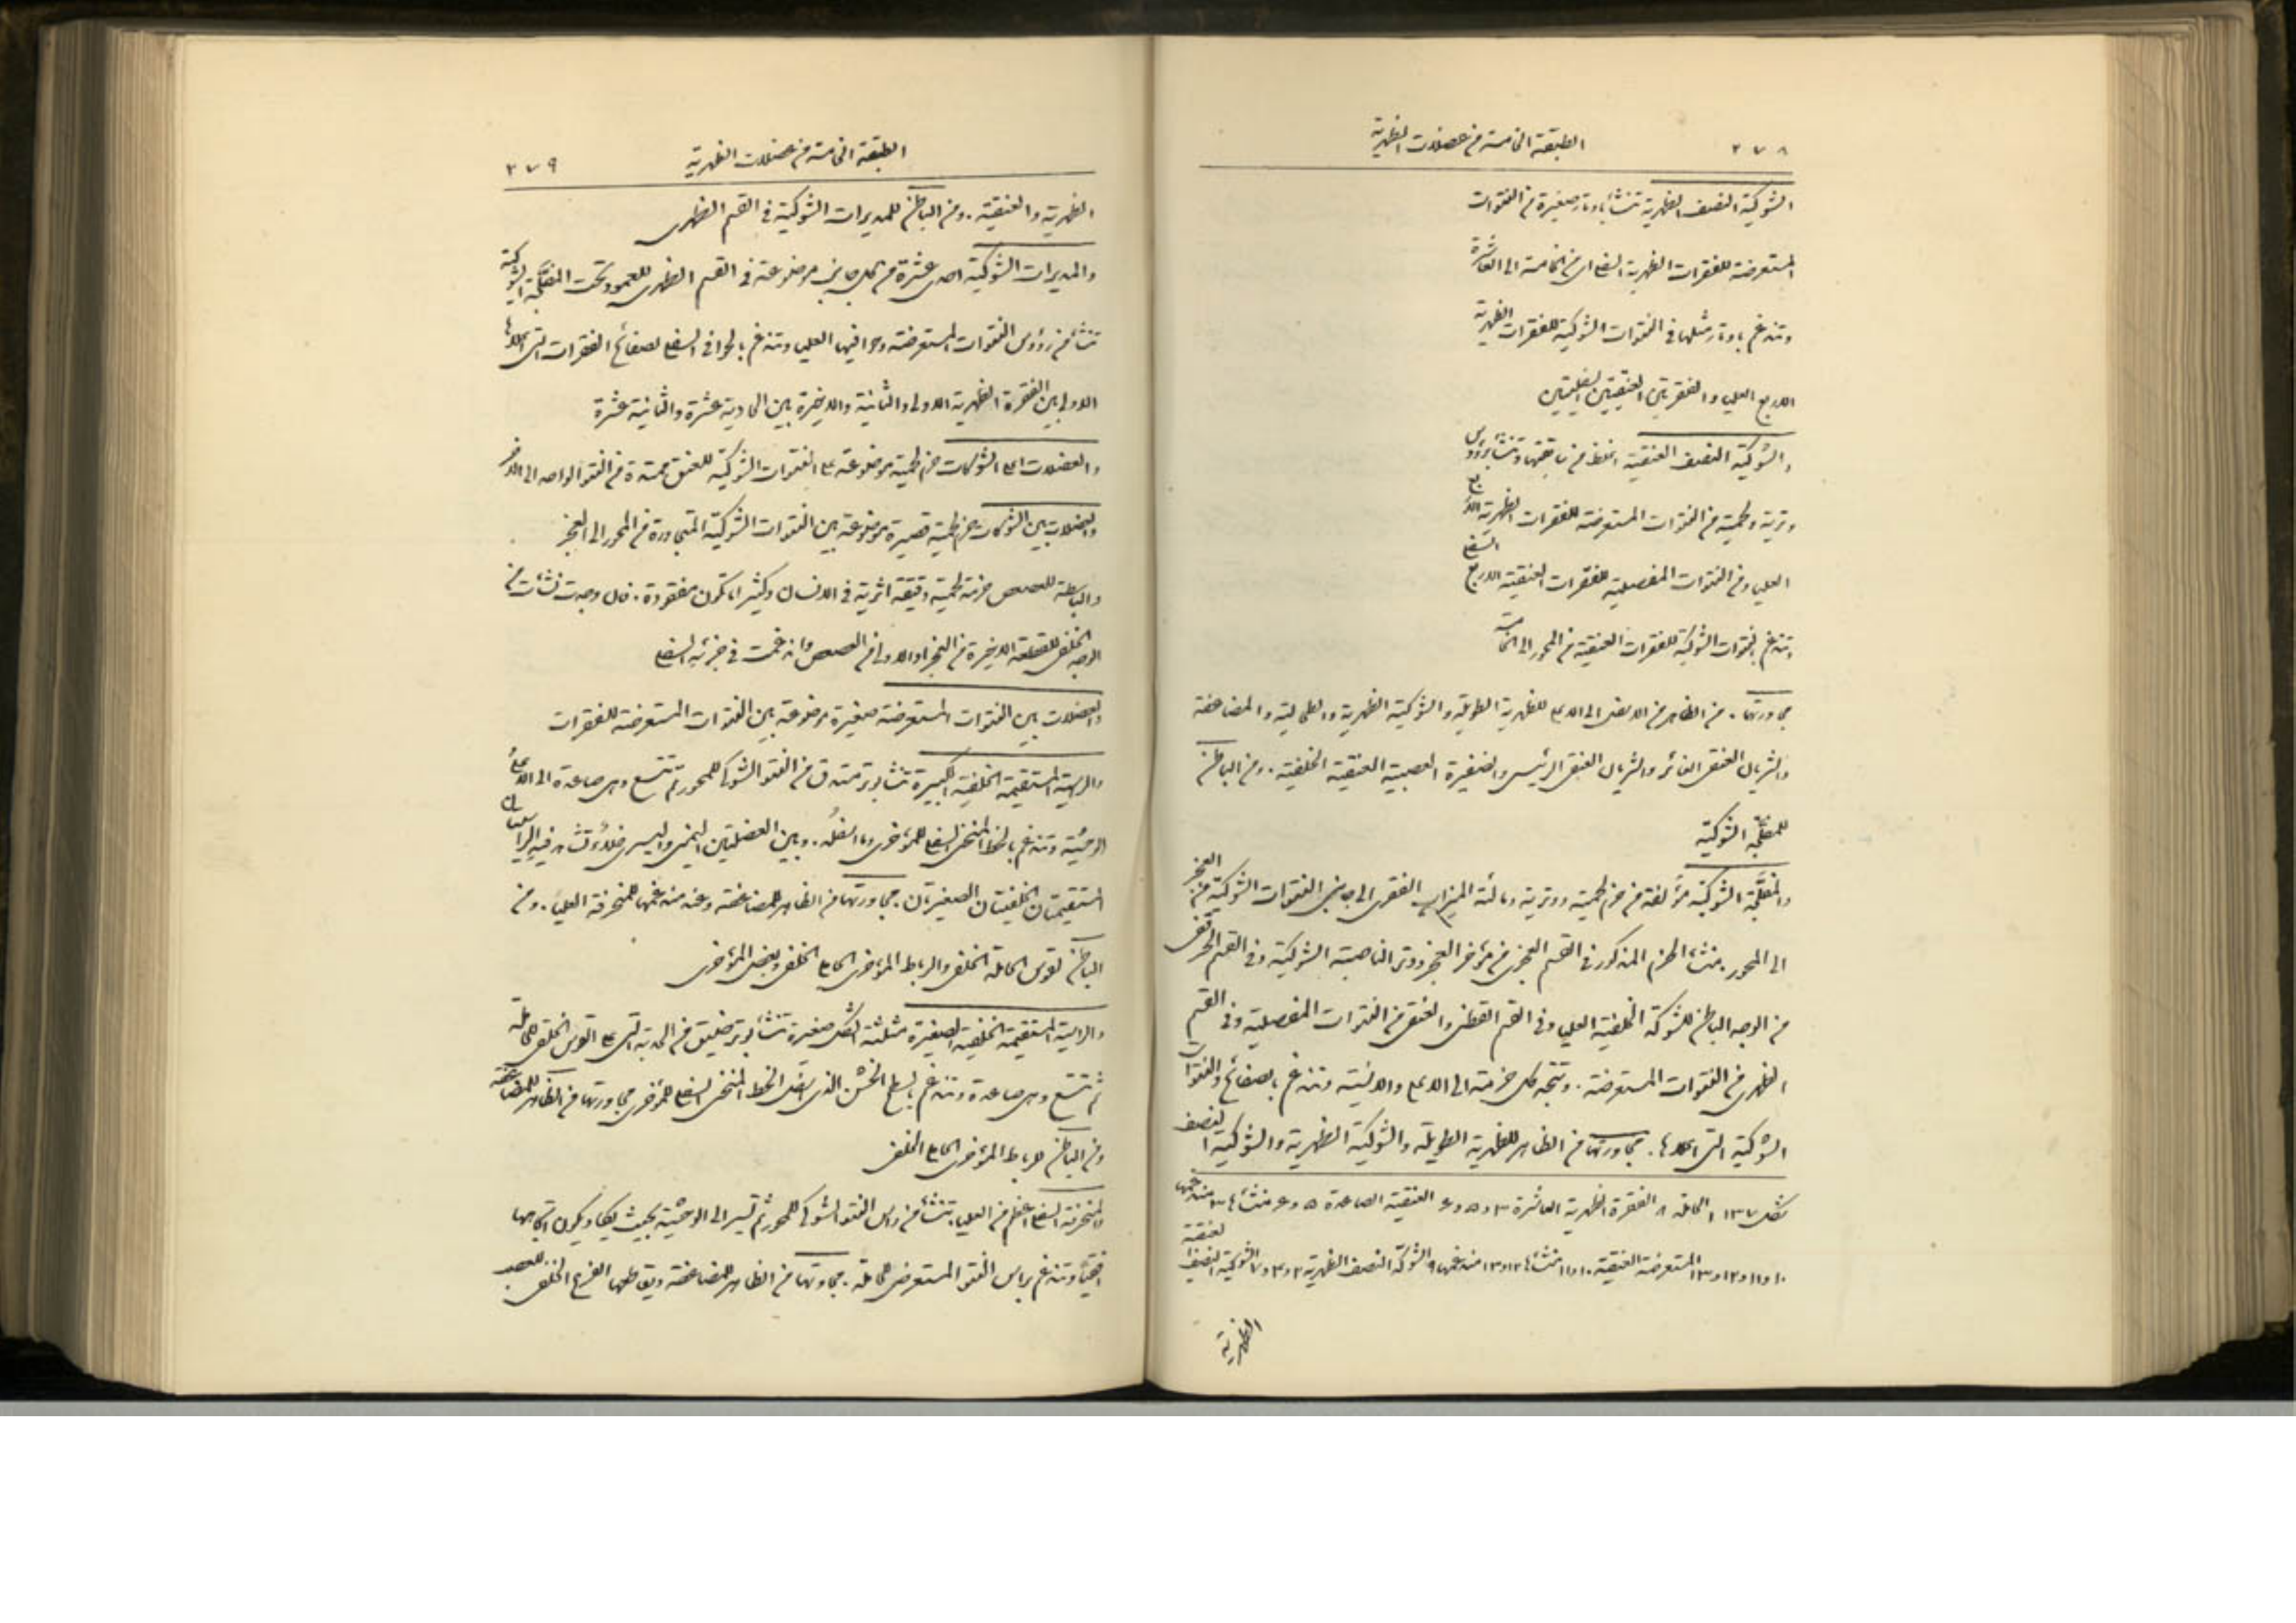 ٢٧٨ الطبقة الخامسة من عضلات الظهرية
الشوكية النصف الظهرية تنشأ باوتار صغيرة من النتوات
المستعرضة للفقرات الظهرية السفلى اى من الخامسة الى العاشرة
وتندغم باوتار مثلها فى النتوات الشوكية للفقرات الظهرية
الاربع العليا والفقرتين العنقيتين السفليتين
والشوكية النصف العنقية اغلظ من سابقتها وتنشأ برؤوس
وترية ولحمية من النتوات المستعرضة للفقرات الظهرية الاربع
العليا ومن النتوات المفصلية للفقرات العنقية الاربع السفلى
وتندغم بنتوات الشوكية للفقرات العنقية من المحور الى الخامسة
مجاورتها. من الظاهر من الاسفل الى الاعلى للظهرية الطويلة والشوكية الظهرية والطحالية والمضاعفة
والشريان العنقى الغائر والشريان العنقى الرئيسى والضفيرة العصبية العنقية الخلفية. ومن الباطن
للمفلجة الشوكية
والمفلجة الشوكية مؤلفة من حزم لحمية ووترية ومالئة الميزاب الفقرى الى جانبى النتوات الشوكية من العجز
الى المحور. منشأ الحزم المذكور فى القسم العجزى من مؤخر العجز ووتر الناصبة الشوكية وفى القسم الحرقفى
من الوجه الباطن للشوكة الخلفية العليا وفى القسم القطنى والعنقى من النتوات المفصلية وفى القسم
الظهرى من النتوات المستعرضة. وتتجه كل حزمة الى الاعلى والانسية وتندغم بالصفائح والنتوات
الشوكية التى اعلاها. مجاورتها من الظاهر للظهرية الطويلة والشوكية الظهرية والشوكية النصف
شكل ١٣٧ الحاملة ٨ الفقرة الظهرية العاشرة ٣ و٥ و٤ العنقية الصاعدة ٥ و٤ منشأها ٣ مندغمها
١٠ و١١ و١٢ و١٣ المستعرضة العنقية ١٠ و١١ منشأها ١٢ و١٣ مندغمها ٩ الشوكية النصف الظهرية ٢ و٣ و٧ الشوكية النصف العنقية
الظهرية
الطبقة الخامسة من عضلات الظهرية ٢٧٩
الظهرية والعنقية. ومن الباطن للمديرات الشوكية فى القسم الظهرى
والمديرات الشوكية احدى عشرة من كل جانب موضوعة فى القسم الظهرى للعمود وتحت المفلجة الشوكية
تنشأ من رؤوس النتوات المستعرضة وحوافيها العليا وتندغم بالحوافى السفلى لصفائح الفقرات التى اعلاها
الاولى بين الفقرة الظهرية الاولى والثانية والاخيرة بين الحادية عشرة والثانية عشرة
والعضلات اعلى الشوكات حزم لحمية موضوعة على النتوات الشوكية للعنق ممتدة من النتو الواحد الى الآخر
والعضلات بين الشوكات حزم لحمية قصيرة موضوعة بين النتوات الشوكية المتجاورة من المحور الى العجز
والباسطة للعصعص حزمة لحمية دقيقة اثرية فى الانسان وكثيرا ما تكون مفقودة. فان وجدت نشأت من
الوجه الخلفى للقطعة الاخيرة من العجز او الاولى من العصعص واندغمت فى جزئه السفلى
والعضلات بين النتوات المستعرضة صغيرة موضوعة بين النتوات المستعرضة للفقرات
والراسية المستقيمة الخلفية الكبيرة تنشأ بوتر مستدق من النتو الشوكى للمحور ثم تتسع وهى صاعدة الى الاعلى
الوحشية وتندغم بالخط المنحنى السفلى للمؤخرى وما اسفله. وبين العضلتين اليمنى واليسرى خلاء تشاهد فيه الراسيتان
المستقيمتان الخلفيتان الصغيرتان. مجاورتها من الظاهر للمضاعفة وعند مندغمها للمنحرفة العليا. ومن
الباطن لقوس الحاملة الخلفى والرباط المؤخرى الحاملى الخلفى وبعض المؤخرى
والراسية المستقيمة الخلفية الصغيرة مثلثة الشكل صغيرة تنشأ بوتر ضيق من الحدبة التى على القوس الخلفى للحاملة
ثم تتسع وهى صاعدة وتندغم بالسطح الخشن الذى اسفل الخط المنحنى السفلى للمؤخرى مجاورتها من الظاهر للمضاعفة
ومن الباطن للرباط المؤخرى الحاملى الخلفى
والمنحرفة السفلى اعظم من العليا. تنشأ من راس النتو الشوكى للمحور ثم تسير الى الوحشية بحيث يكاد يكون اتجاهها
افقيا وتندغم براس النتو المستعرض للحاملة. مجاورتها من الظاهر للمضاعفة ويقاطعها الفرع الخلفى للعصب